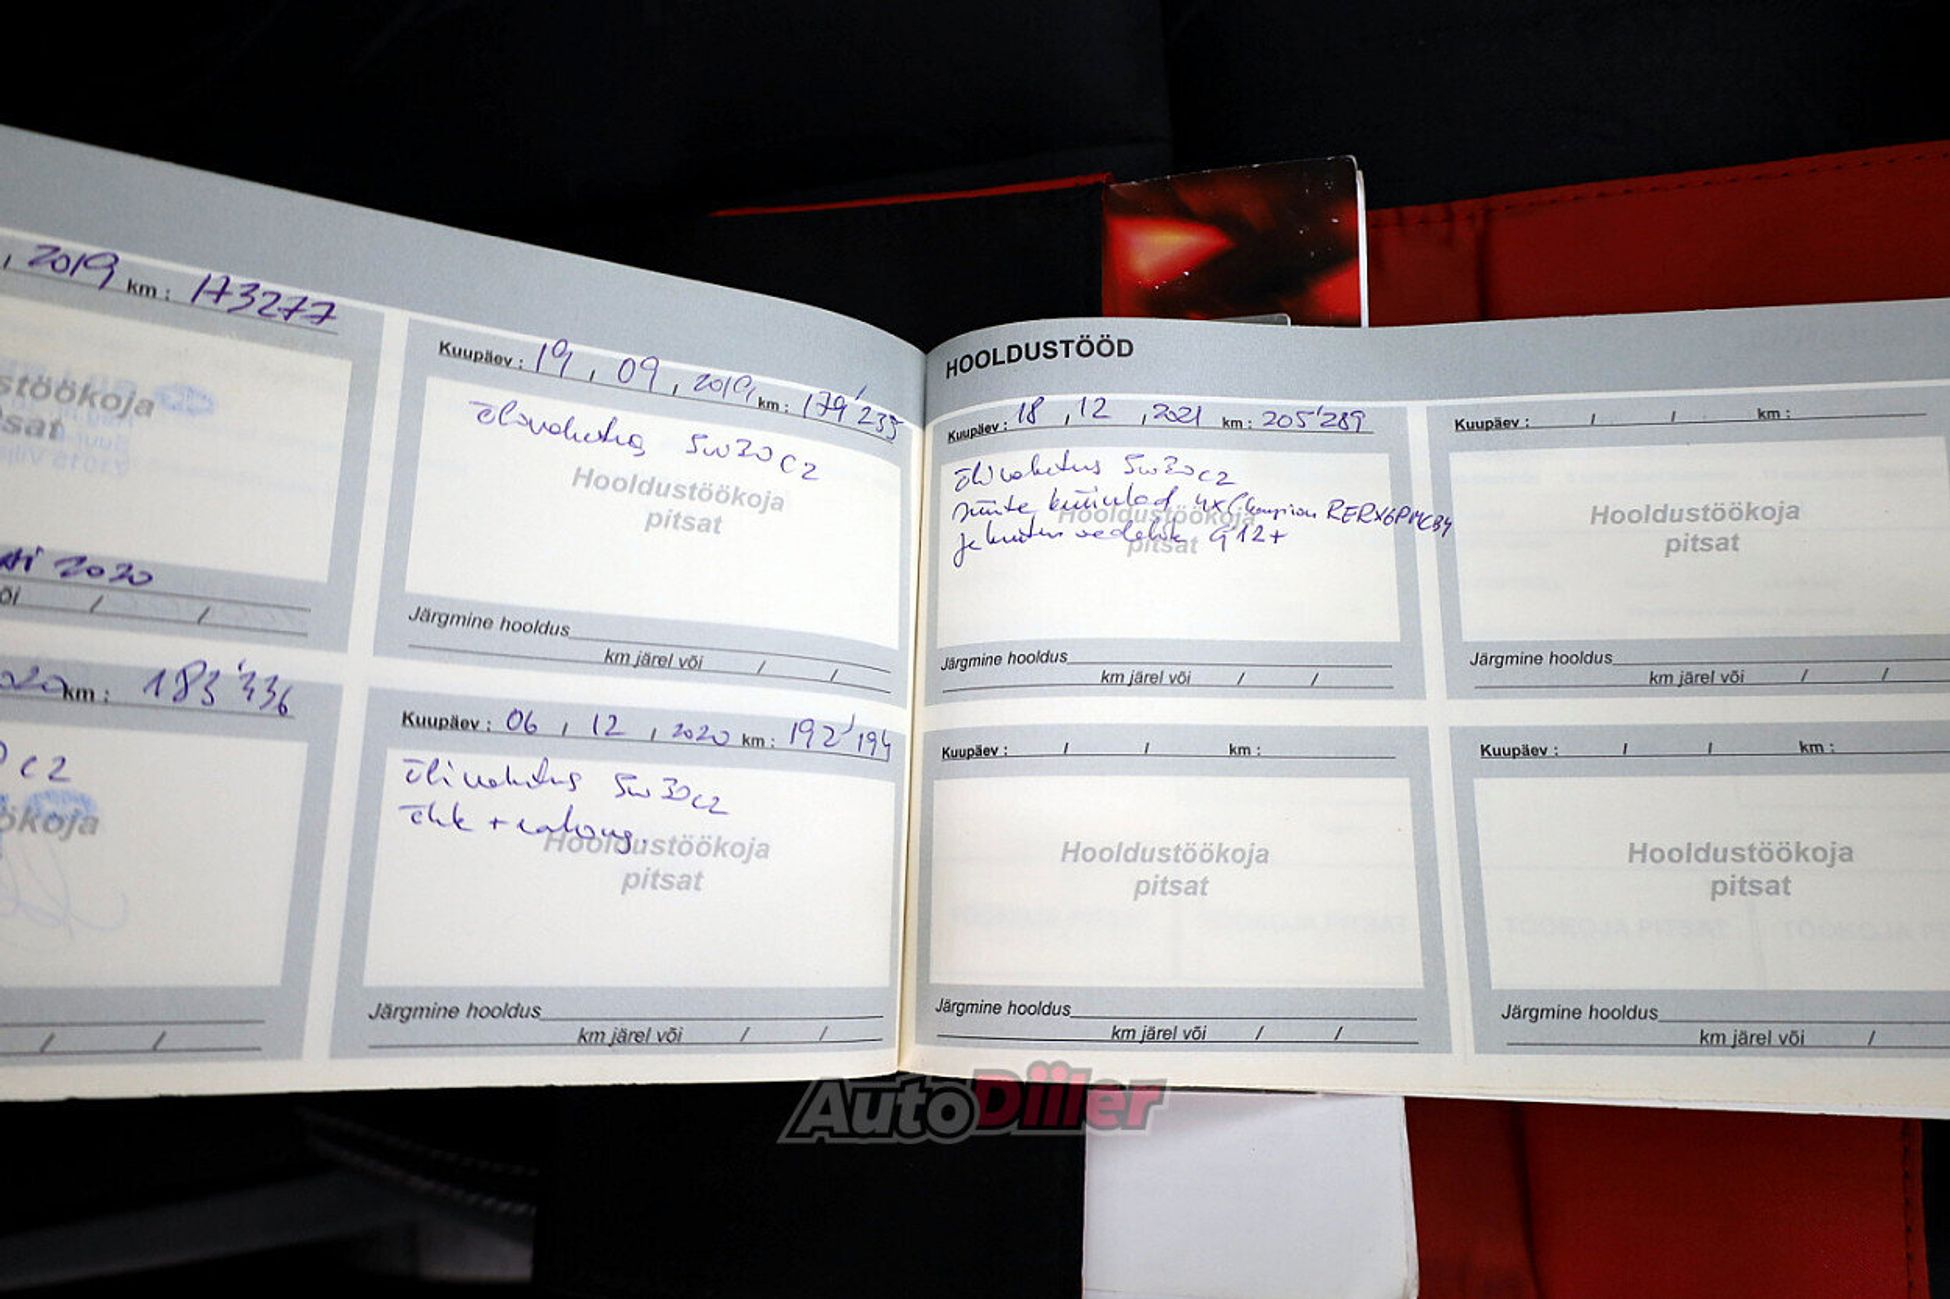 , 2019 km : 173277
stöökoja
sat
2020
või / /
2020 km : 183'436
C2
ökoja
/ /
Kuupäev : 19 , 09 , 2019 km : 179'235
Õlivahetus 5w30 C2
Hooldustöökoja
pitsat
Järgmine hooldus
km järel või / /
Kuupäev : 06 , 12 , 2020 km : 192'194
Õlivahetus 5w30 C2
Õhk +
Hooldustöökoja
pitsat
Järgmine hooldus
km järel või / /
HOOLDUSTÖÖD
Kuupäev : 18 , 12 , 2021 km : 205'289
Õlivahetus 5w30 C2
süüte küünlad 4x Champion RERX6PMCB4
jahutus vedelik G12+
Hooldustöökoja
pitsat
Järgmine hooldus
km järel või / /
Kuupäev : / / km :
Hooldustöökoja
pitsat
Järgmine hooldus
km järel või / /
Kuupäev : / / km :
Hooldustöökoja
pitsat
Järgmine hooldus
km järel või / /
Kuupäev : / / km :
Hooldustöökoja
pitsat
Järgmine hooldus
km järel või /
AutoDiiler